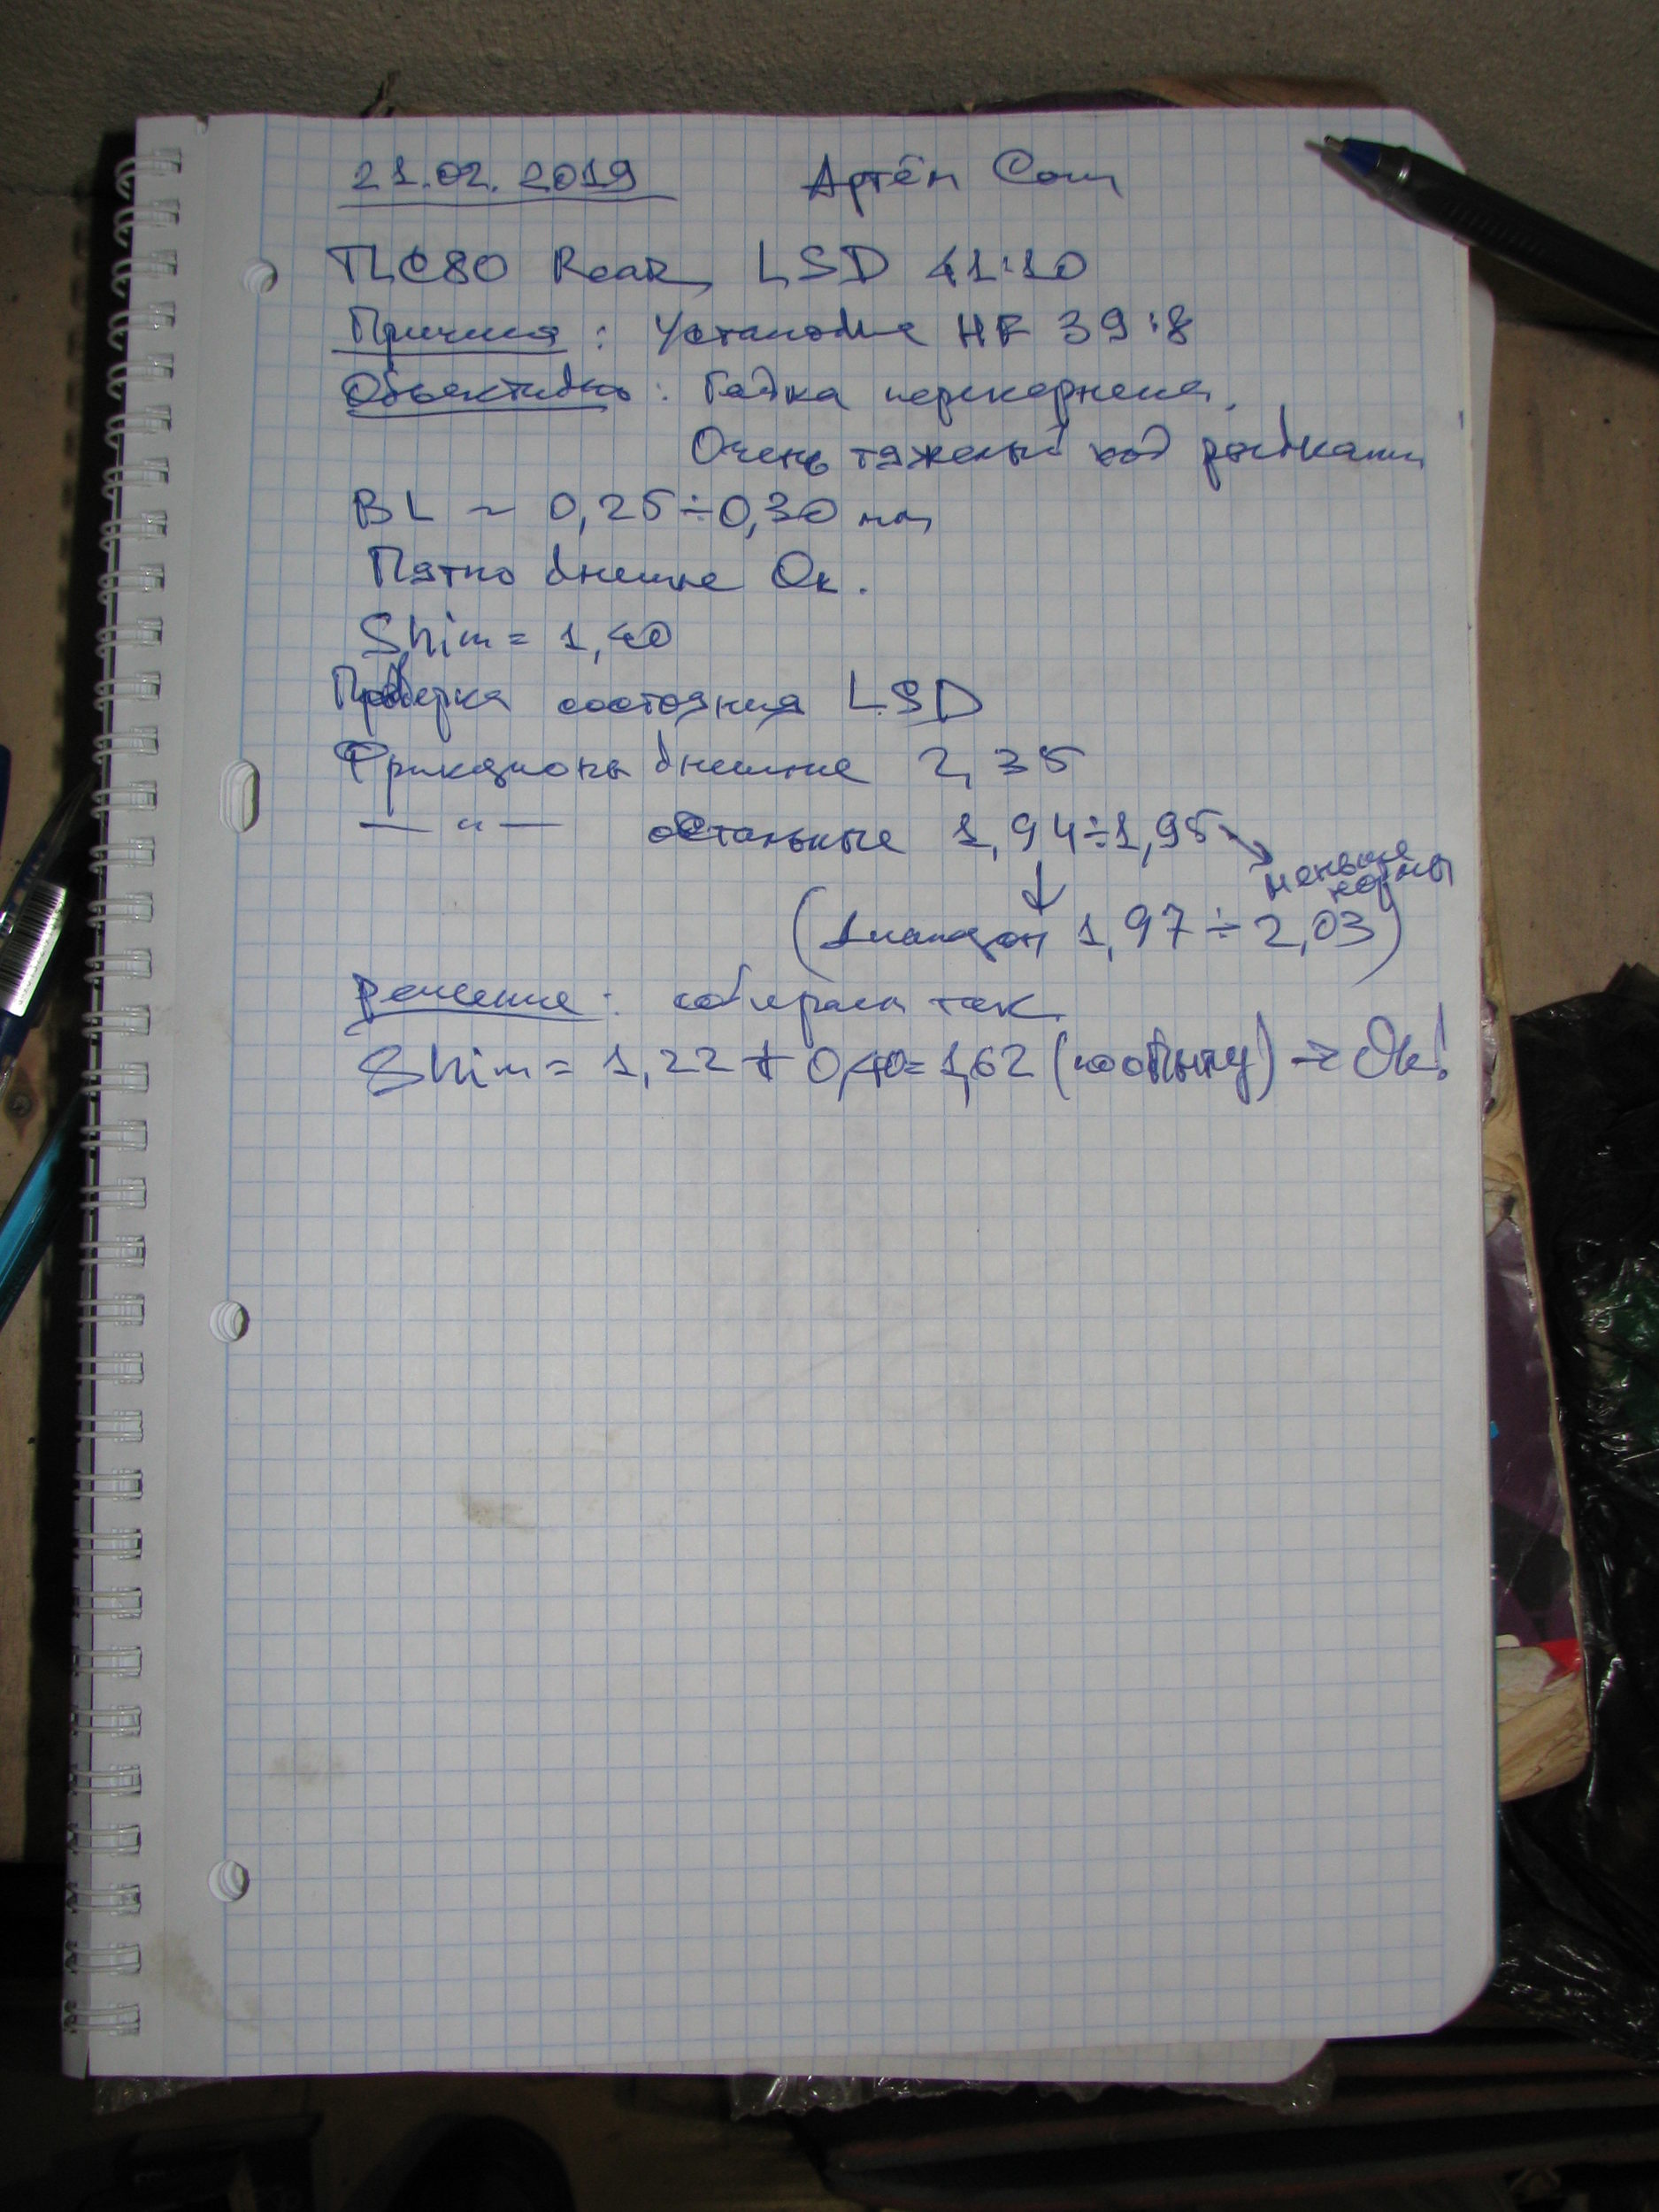 21.02.2019 Артём Сош
TLC80 Rear LSD 41:10
Причина: Установка HF 39:8
Объективно: Гайка перекернена.
Очень тяжелый ход руками
BL ~ 0,25÷0,30 мм
Пятно внешне Ок.
Shim = 1,40
Проверка состояния LSD
Фрикционы внешние 2,35
— " — остальные 1,94÷1,95
меньше нормы
(диапазон 1,97÷2,03)
Решение: собираем так.
Shim = 1,22 + 0,40 = 1,62 (по опыту) → Ok!